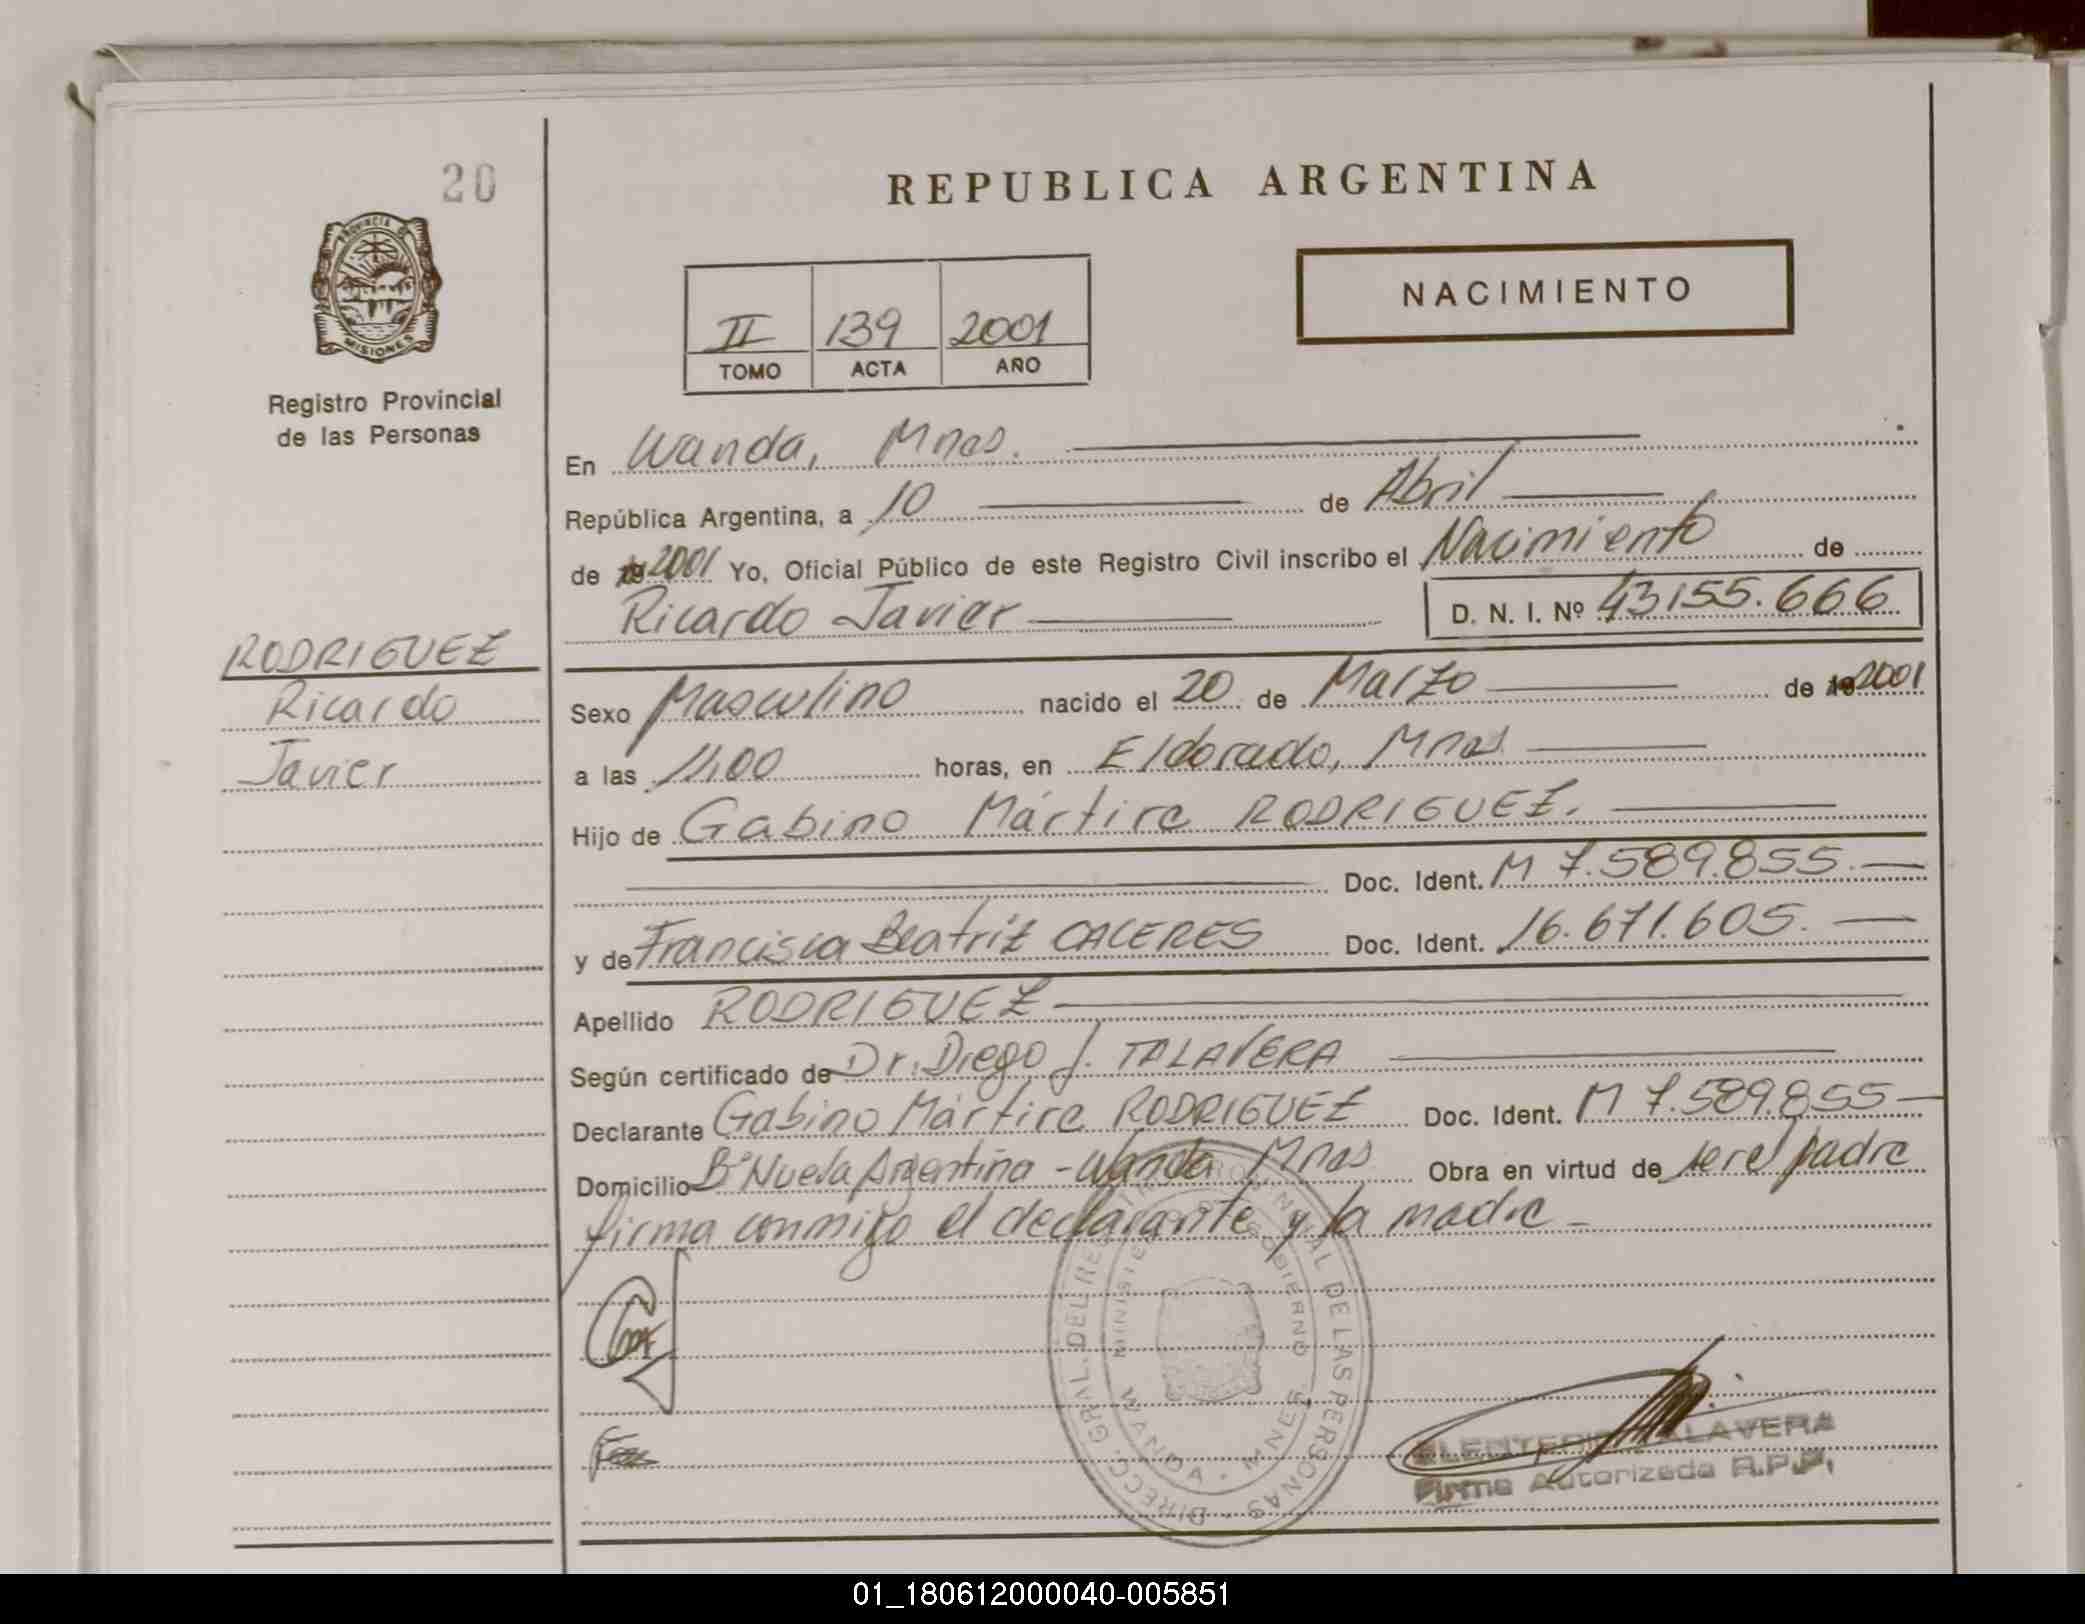 20
REPUBLICA ARGENTINA
PROVINCIA DE
MISIONES
Registro Provincial
de las Personas
II 139 2001
TOMO ACTA AÑO
NACIMIENTO
En Wanda, Mnes.
República Argentina, a 10 de Abril
de 19 2001 Yo, Oficial Público de este Registro Civil inscribo el Nacimiento de
Ricardo Javier D. N. I. Nº 43155.666
RODRIGUEZ
Ricardo
Javier
Sexo Masculino nacido el 20 de Marzo de 19 2001
a las 11,00 horas, en Eldorado, Mnes
Hijo de Gabino Mártire RODRIGUEZ.
Doc. Ident. M 7.589.855.—
y de Francisca Beatriz CACERES Doc. Ident. 16.671.605.—
Apellido RODRIGUEZ
Según certificado de Dr. Diego J. TALAVERA
Declarante Gabino Mártire RODRIGUEZ Doc. Ident. M 7.589.855—
Domicilio Bº Nueva Argentina - Wanda Mnes Obra en virtud de ser el padre
firma conmigo el declarante y la madre -
DIRECC. GRAL. DEL REGISTRO PROVINCIAL DE LAS PERSONAS
MINISTERIO DE GOBIERNO
WANDA - MNES.
ELENTERIO TALAVERA
Firma Autorizada R.P.P.
01_180612000040-005851